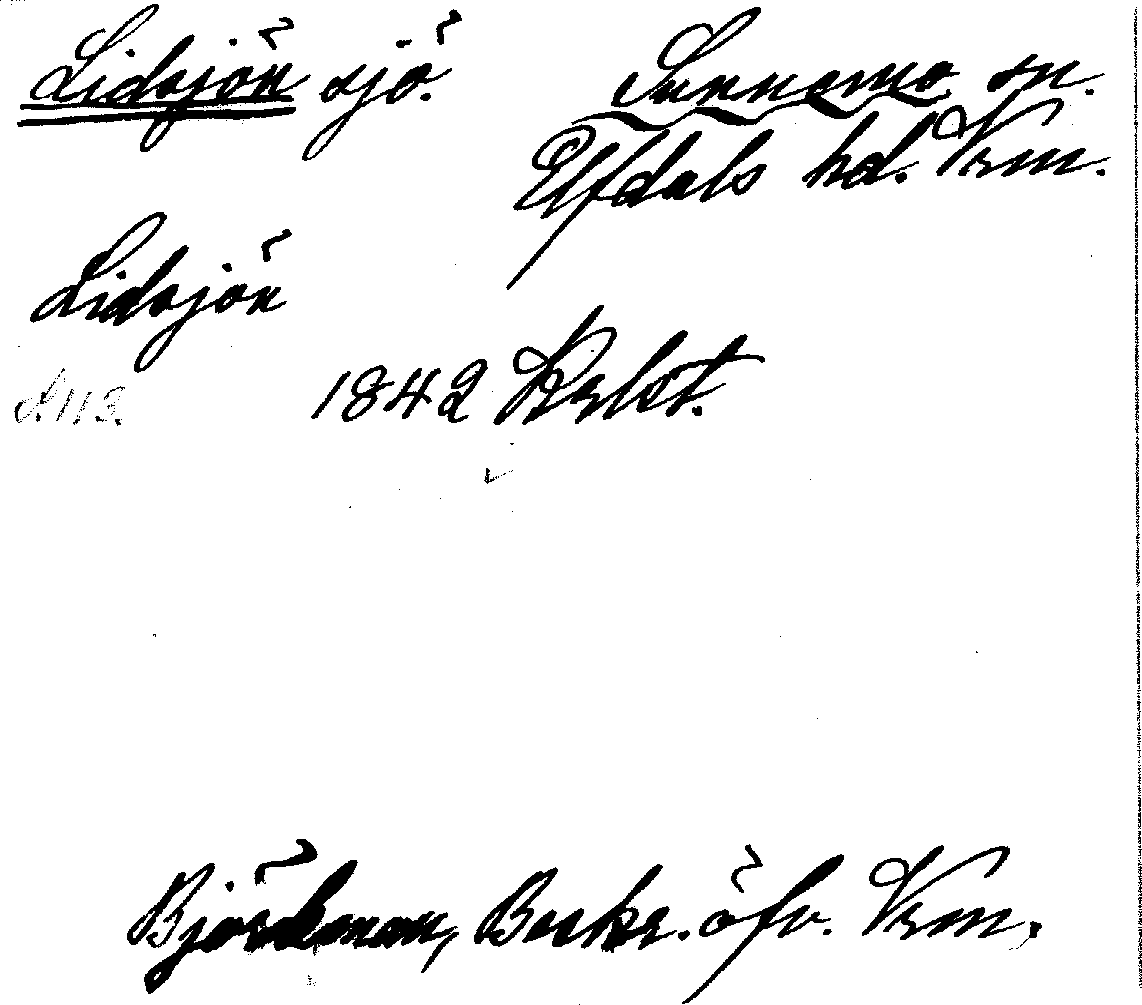 Lidsjön sjö. Sunnemo sn.
Elfdals hd. Vrm.
Lidsjön
S. 113. 1842 Krlst.
Björkman, Beskr. öfv. Vrm.